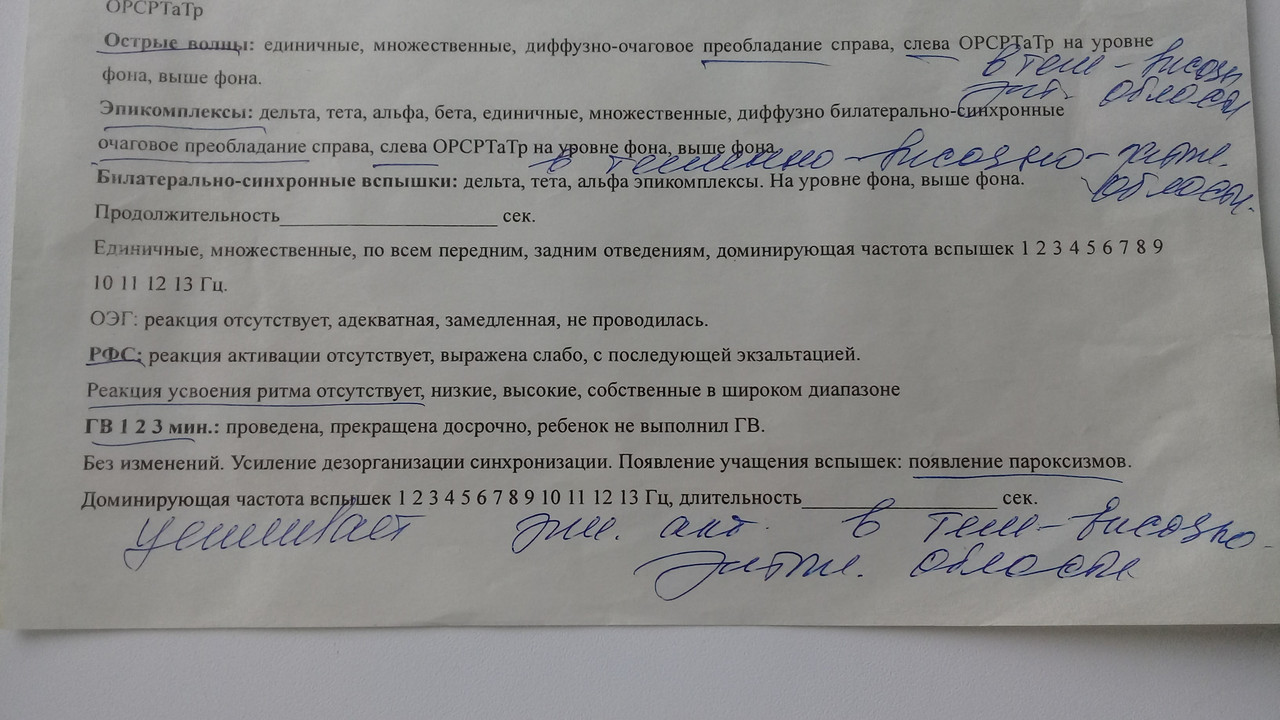 ОРСРТаТр
Острые волны: единичные, множественные, диффузно-очаговое преобладание справа, слева ОРСРТаТр на уровне
в тем - височн
фона, выше фона.
зат. области
Эпикомплексы: дельта, тета, альфа, бета, единичные, множественные, диффузно билатерально-синхронные
очаговое преобладание справа, слева ОРСРТаТр на уровне фона, выше фона.
в теменно - височно - затыл.
Билатерально-синхронные вспышки: дельта, тета, альфа эпикомплексы. На уровне фона, выше фона.
области.
Продолжительность______________________ сек.
Единичные, множественные, по всем передним, задним отведениям, доминирующая частота вспышек 1 2 3 4 5 6 7 8 9
10 11 12 13 Гц.
ОЭГ: реакция отсутствует, адекватная, замедленная, не проводилась.
РФС: реакция активации отсутствует, выражена слабо, с последующей экзальтацией.
Реакция усвоения ритма отсутствует, низкие, высокие, собственные в широком диапазоне
ГВ 1 2 3 мин.: проведена, прекращена досрочно, ребенок не выполнил ГВ.
Без изменений. Усиление дезорганизации синхронизации. Появление учащения вспышек: появление пароксизмов.
Доминирующая частота вспышек 1 2 3 4 5 6 7 8 9 10 11 12 13 Гц, длительность____________________ сек.
усиливает эпи. акт. в тем - височно -
затыл. области